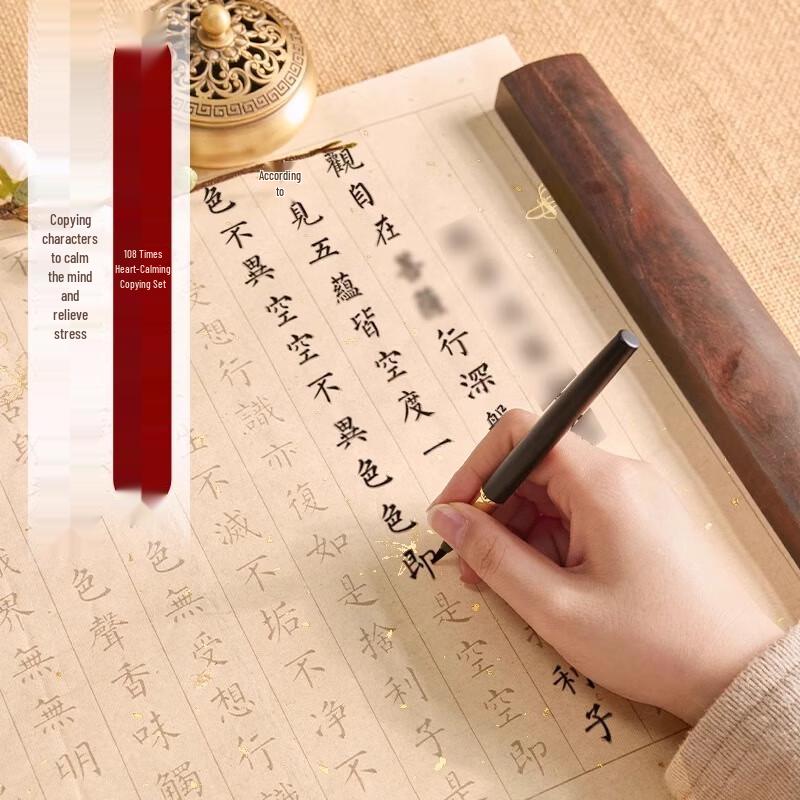 Copying
characters
to calm
the mind
and
relieve
stress
108 Times
Heart-Calming
Copying Set
According
to
觀自在行深般
見五蘊皆空度一利子
色不異空空不異色色即是空空即
受想行識亦復如是捨利子是
不滅不垢不淨不
色無受想行識
身色聲香味觸
界無無明